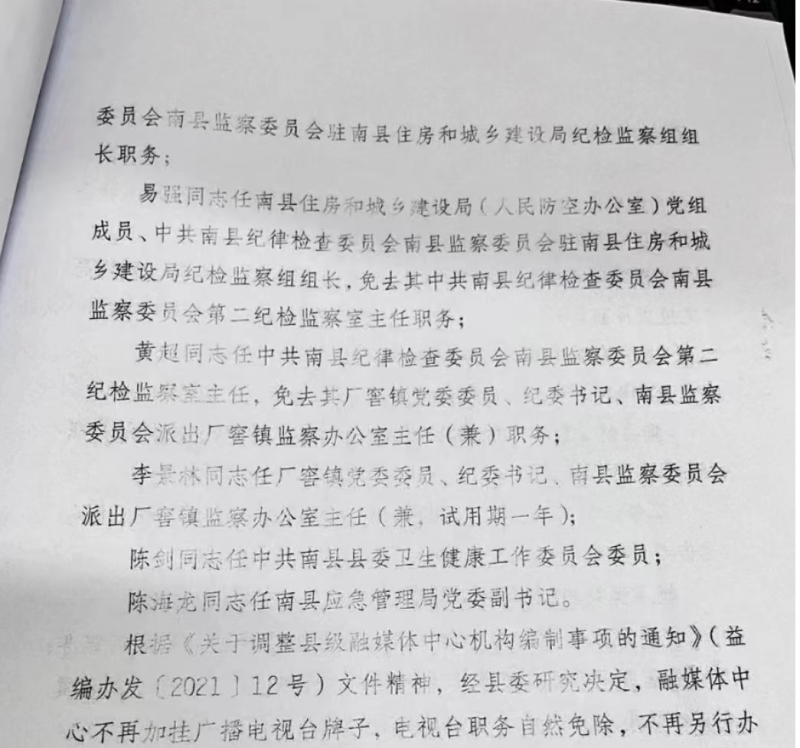 委员会南县监察委员会驻南县住房和城乡建设局纪检监察组组
长职务；
易强同志任南县住房和城乡建设局（人民防空办公室）党组
成员、中共南县纪律检查委员会南县监察委员会驻南县住房和城
乡建设局纪检监察组组长，免去其中共南县纪律检查委员会南县
监察委员会第二纪检监察室主任职务；
黄超同志任中共南县纪律检查委员会南县监察委员会第二
纪检监察室主任，免去其厂窖镇党委委员、纪委书记、南县监察
委员会派出厂窖镇监察办公室主任（兼）职务；
李景林同志任厂窖镇党委委员、纪委书记、南县监察委员会
派出厂窖镇监察办公室主任（兼，试用期一年）；
陈剑同志任中共南县县委卫生健康工作委员会委员；
陈海龙同志任南县应急管理局党委副书记。
根据《关于调整县级融媒体中心机构编制事项的通知》（益
编办发〔2021〕12号）文件精神，经县委研究决定，融媒体中
心不再加挂广播电视台牌子，电视台职务自然免除，不再另行办